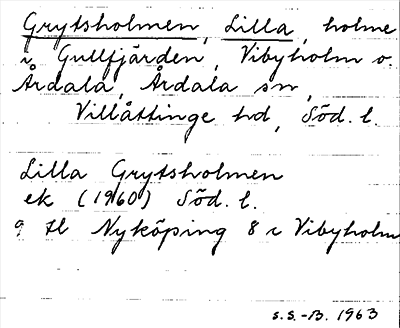 Grytsholmen, Lilla, holme
i Gullfjärden, Vibyholm o.
Årdala, Årdala sn,
Villåttinge hd, Söd. l.
Lilla Grytsholmen
ek (1960) Söd. l.
9 tl Nyköping 8 c Vibyholm
S.S.-B. 1963